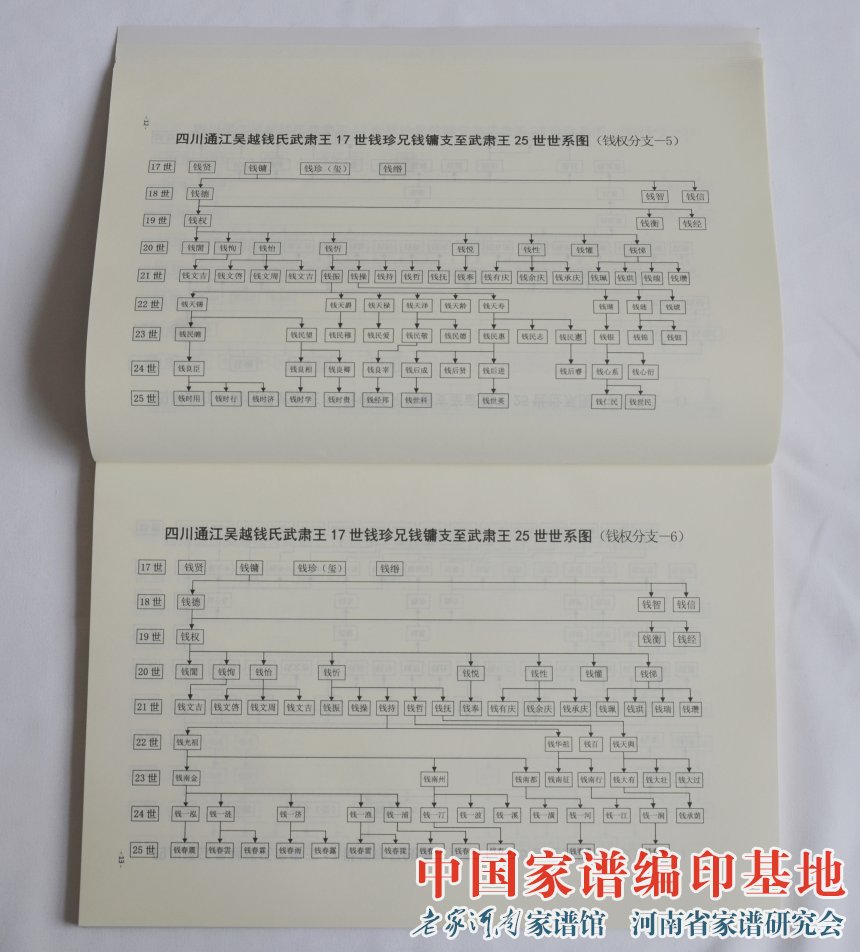 -12-
四川通江吴越钱氏武肃王17世钱珍兄钱镛支至武肃王25世世系图（钱权分支—5）
17世 钱贤 钱镛 钱珍（玺） 钱缙
18世 钱德 钱智 钱信
19世 钱权 钱衡 钱经
20世 钱誾 钱恂 钱怡 钱忻 钱悦 钱性 钱懂 钱悌
21世 钱文吉 钱文啓 钱文周 钱文吉 钱振 钱操 钱持 钱哲 钱抚 钱奉 钱有庆 钱余庆 钱承庆 钱珮 钱珙 钱瑞 钱瓒
22世 钱天锡 钱天爵 钱天禄 钱天泽 钱天龄 钱天寿
23世 钱民瞻 钱民望 钱民穆 钱民爱 钱民敬 钱民德 钱民惠 钱民志 钱民惠 钱银 钱锦
24世 钱良臣 钱良相 钱良卿 钱良宰 钱后成 钱后贤 钱后进 钱后睿 钱心系 钱心衍
25世 钱时用 钱时行 钱时济 钱时学 钱时贵 钱经邦 钱世科 钱世英 钱仁民 钱世民
四川通江吴越钱氏武肃王17世钱珍兄钱镛支至武肃王25世世系图（钱权分支—6）
17世 钱贤 钱镛 钱珍（玺） 钱缙
18世 钱德 钱智 钱信
19世 钱权 钱衡 钱经
20世 钱誾 钱恂 钱怡 钱忻 钱悦 钱性 钱懂 钱悌
21世 钱文吉 钱文啓 钱文周 钱文吉 钱振 钱操 钱持 钱哲 钱抚 钱奉 钱有庆 钱余庆 钱承庆 钱珮 钱珙 钱瑞 钱瓒
22世 钱光祖 钱华祖 钱百 钱天與
23世 钱南金 钱南州 钱南都 钱南征 钱南行 钱大有 钱大壮 钱大过
24世 钱一泓 钱一涟 钱一济 钱一淮 钱一浦 钱一汀 钱一波 钱一溪 钱一潢 钱一河 钱一江 钱一澜 钱承荫
25世 钱春震 钱春雲 钱春霖 钱春雨 钱春露 钱春雷
-13-
中国家谱编印基地
老家河南家谱馆 河南省家谱研究会